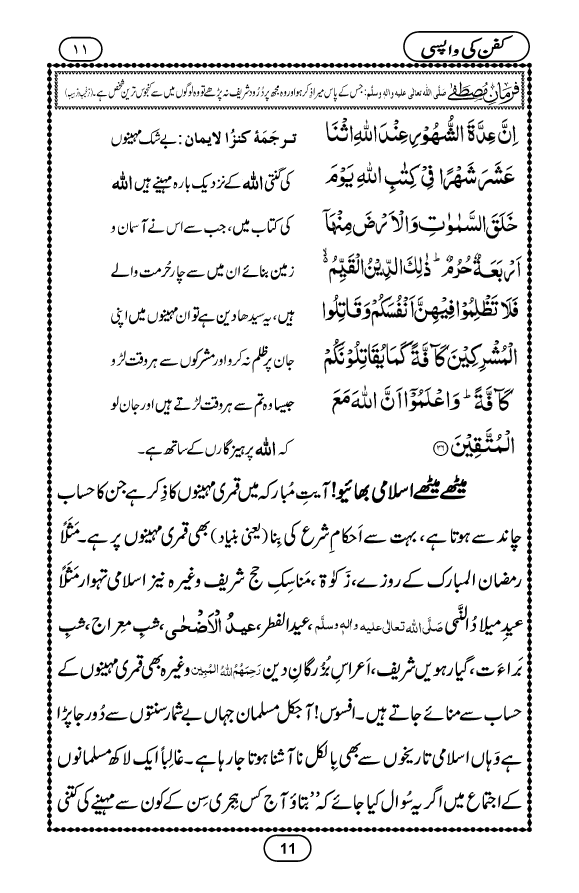 کفن کی واپسی
۱۱
فرمانِ مصطَفٰے صلَّی اللہ تعالٰی علیہ واٰلہٖ وسلَّم: جس کے پاس میرا ذِکر ہو اور وہ مجھ پر دُرُود شریف نہ پڑھے تو وہ لوگوں میں سے کنجوس ترین شخص ہے۔ (ترغیب ترہیب)
اِنَّ عِدَّةَ الشُّهُوْرِ عِنْدَ اللّٰهِ اثْنَا
عَشَرَ شَهْرًا فِیْ كِتٰبِ اللّٰهِ یَوْمَ
خَلَقَ السَّمٰوٰتِ وَ الْاَرْضَ مِنْهَاۤ
اَرْبَعَةٌ حُرُمٌؕ ذٰلِكَ الدِّیْنُ الْقَیِّمُ ۙ۬
فَلَا تَظْلِمُوْا فِیْهِنَّ اَنْفُسَكُمْ وَ قَاتِلُوا
الْمُشْرِكِیْنَ كَآفَّةً كَمَا یُقَاتِلُوْنَكُمْ
كَآفَّةًؕ وَ اعْلَمُوْۤا اَنَّ اللّٰهَ مَعَ
الْمُتَّقِیْنَ ۝۳۶
ترجَمۂ کنزُا لایمان: بے شک مہینوں
کی گنتی اللہ کے نزدیک بارہ مہینے ہیں اللہ
کی کتاب میں، جب سے اس نے آسمان و
زمین بنائے ان میں سے چار حُرمت والے
ہیں، یہ سیدھا دین ہے تو ان مہینوں میں اپنی
جان پر ظلم نہ کرو اور مشرکوں سے ہر وقت لڑو
جیسا وہ تم سے ہر وقت لڑتے ہیں اور جان لو
کہ اللہ پرہیز گاروں کے ساتھ ہے۔
میٹھے میٹھے اسلامی بھائیو! آیتِ مُبارَکہ میں قمری مہینوں کا ذِکر ہے جن کا حساب
چاند سے ہوتا ہے، بہت سے اَحکامِ شَرع کی بِنا (یعنی بنیاد) بھی قمری مہینوں پر ہے۔ مَثَلاً
رمضان المبارک کے روزے، زکوٰۃ، مَناسِکِ حج شریف وغیرہ نیز اسلامی تہوار مَثَلاً
عیدِ میلادُ النَّبی صَلَّی اللہ تعالٰی علیہ واٰلہٖ وسلَّم، عیدالفطر، عیدُ الْاَضْحٰی، شبِ معراج، شبِ
بَراءَت، گیارہویں شریف، اَعراسِ بُزُرگانِ دین رَحِمَهُمُ اللّٰهُ المُبِین وغیرہ بھی قمری مہینوں کے
حساب سے منائے جاتے ہیں۔ افسوس! آجکل مسلمان جہاں بے شمار سنتوں سے دُور جا پڑا
ہے وَہاں اسلامی تاریخوں سے بھی بِالکل نا آشنا ہوتا جا رہا ہے۔ غالِباً ایک لاکھ مسلمانوں
کے اجتماع میں اگر یہ سُوال کیا جائے کہ ’’بتاؤ آج کس ہِجری سِن کے کون سے مہینے کی کتنی
11